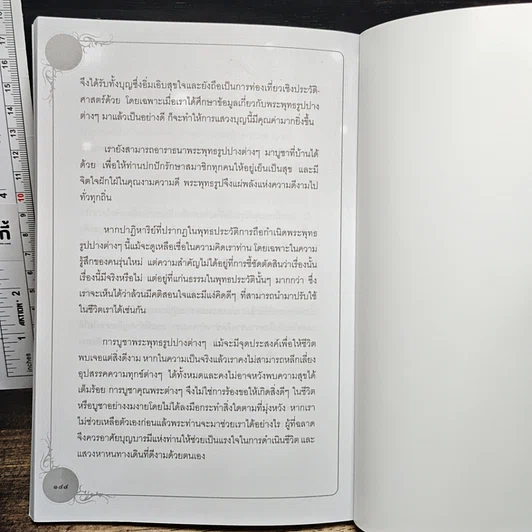 จึงได้รับทั้งบุญซึ่งอิ่มเอิบสุขใจและยังถือเป็นการท่องเที่ยวเชิงประวัติ-
ศาสตร์ด้วย โดยเฉพาะเมื่อเราได้ศึกษาข้อมูลเกี่ยวกับพระพุทธรูปปาง
ต่างๆ มาแล้วเป็นอย่างดี ก็จะทำให้การแสวงบุญนี้มีคุณค่ามากยิ่งขึ้น
เรายังสามารถอาราธนาพระพุทธรูปปางต่างๆ มาบูชาที่บ้านได้
ด้วย เพื่อให้ท่านปกปักรักษาสมาชิกทุกคนให้อยู่เย็นเป็นสุข และมี
จิตใจฝักใฝ่ในคุณงามความดี พระพุทธรูปจึงแผ่พลังแห่งความดีงามไป
ทั่วทุกถิ่น
หากปาฏิหาริย์ที่ปรากฏในพุทธประวัติการถือกำเนิดพระพุทธ
รูปปางต่างๆ นี้แม้จะดูเหลือเชื่อในความคิดเราท่าน โดยเฉพาะในความ
รู้สึกของคนรุ่นใหม่ แต่ความสำคัญไม่ได้อยู่ที่การชี้ชัดตัดสินว่าเรื่องนั้น
เรื่องนี้มีจริงหรือไม่ แต่อยู่ที่แก่นธรรมในพุทธประวัตินั้นๆ มากกว่า ซึ่ง
เราจะเห็นได้ว่าล้วนมีคติสอนใจและมีแง่คิดดีๆ ที่สามารถนำมาปรับใช้
ในชีวิตเราได้เช่นกัน
การบูชาพระพุทธรูปปางต่างๆ แม้จะมีจุดประสงค์เพื่อให้ชีวิต
พบเจอแต่สิ่งดีงาม หากในความเป็นจริงแล้วเราคงไม่สามารถหลีกเลี่ยง
อุปสรรคความทุกข์ต่างๆ ได้ทั้งหมดและคงไม่อาจหวังพบความสุขได้
เต็มร้อย การบูชาคุณพระต่างๆ จึงไม่ใช่การร้องขอให้เกิดสิ่งดีๆ ในชีวิต
หรือบูชาอย่างงมงายโดยไม่ได้ลงมือกระทำสิ่งใดตามที่มุ่งหวัง หากเรา
ไม่ช่วยเหลือตัวเองก่อนแล้วพระท่านจะมาช่วยเราได้อย่างไร ผู้ที่ฉลาด
จึงควรอาศัยบุญบารมีแห่งท่านให้ช่วยเป็นแรงใจในการดำเนินชีวิต และ
แสวงหาหนทางเดินที่ดีงามด้วยตนเอง
๑๔๔